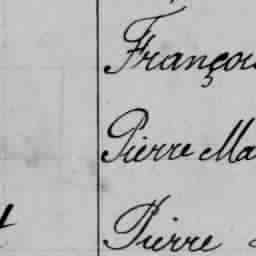 Françoi
Pierre Ma
Pierre